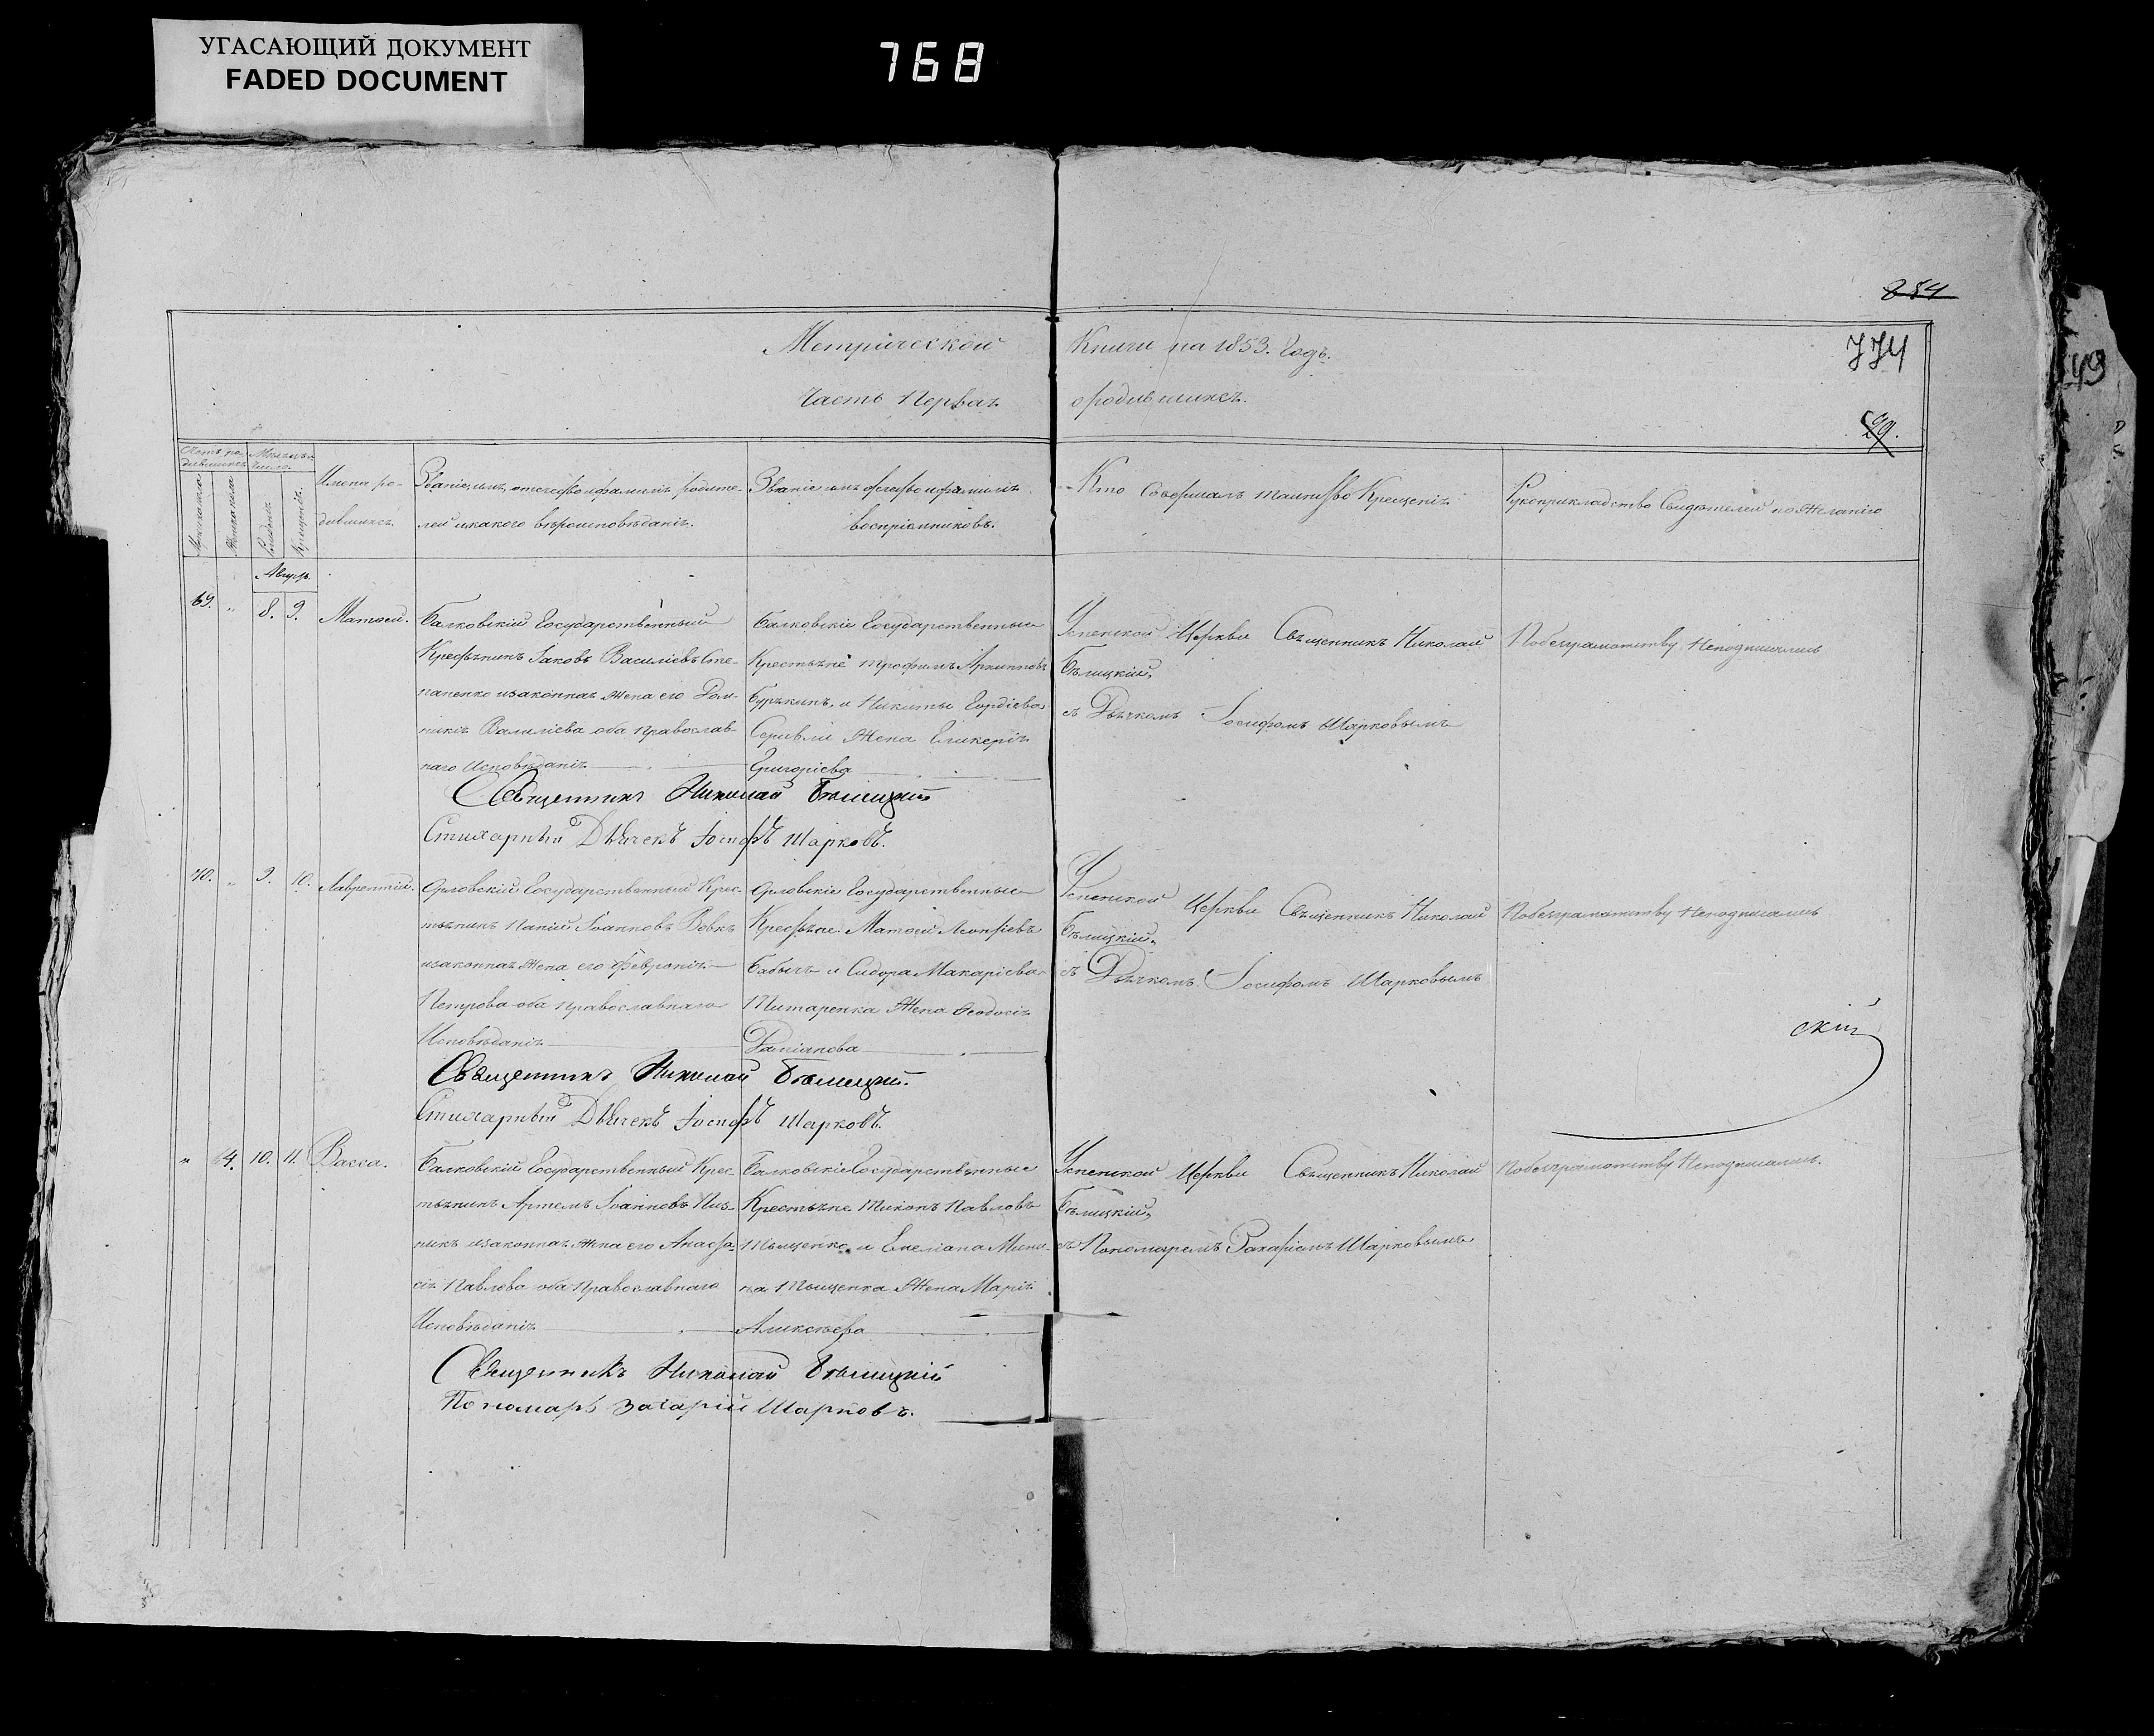 УГАСАЮЩИЙ ДОКУМЕНТ
FADED DOCUMENT
768
254
Метрической Книги на 1853. Годъ.
774
Часть Первая о родившихся.
99.
Счетъ ро- Мѣсяцъ и
дившихся число.
Мужеска Женска
Рожденія Крещенія
Имена ро-
дившихся.
Званіе, имя, отечество и фамилія родите-
лей и какого вѣроисповѣданія.
Званіе имя отечество и фамилія
воспріемниковъ.
Кто совершалъ таинство Крещенія
Рукоприкладство Свидѣтелей по Желанію
Августъ
69. „ 8. 9. Матѳей.
Балковскій Государственный
Крестьянинъ Іаковъ Василіевъ Сте-
паненко и законная Жена его Дом-
никія Василіева оба Православ-
наго Исповѣданія
Балковскіе Государственные
Крестьяне Трофимъ Архиповъ
Бурякинъ, и Никиты Гордіева
Жена Гликерія
Григоріева
Успенской Церкви Священникъ Николай
Бѣлицкій,
съ Дьячкомъ Іосифомъ Шарковымъ
По безграмотству Неподписались
Священникъ Николай Бѣлицкій
Стихарный Дьячекъ Іосифъ Шарковъ.
70. „ 9. 10. Лаврентій.
Орловскій Государственный Крес-
тьянинъ Іоанновъ Вовкъ
и законная Жена его Февронія
Петрова оба Православнаго
Исповѣданія
Орловскіе Государственные
Крестьяне: Матѳей Леонтіевъ
Бабычъ и Сидора Макаріева
Титаренка Жена Ѳеодосія
Даміанова
Успенской Церкви Священникъ Николай
Бѣлицкій,
съ Дьячкомъ Іосифомъ Шарковымъ
По безграмотству Неподписались
скій
Священникъ Николай Бѣлицкій.
Стихарный Дьячекъ Іосифъ Шарковъ.
„ 64. 10. 11. Васса.
Балковскій Государственный Крес-
тьянинъ Артемъ Іоанновъ Пив-
никъ и законная Жена его Анаста-
сія Павлова оба Православнаго
Исповѣданія
Балковскіе Государственные
Крестьяне Тихонъ Павловъ
Тыщенко и Емеліана Мини-
на Тыщенка Жена Марія
Алексѣева
Успенской Церкви Священникъ Николай
Бѣлицкій,
съ Пономаремъ Захаріемъ Шарковымъ
По безграмотству Неподписались.
Священникъ Николай Бѣлицкій
Пономарь Захарій Шарковъ.